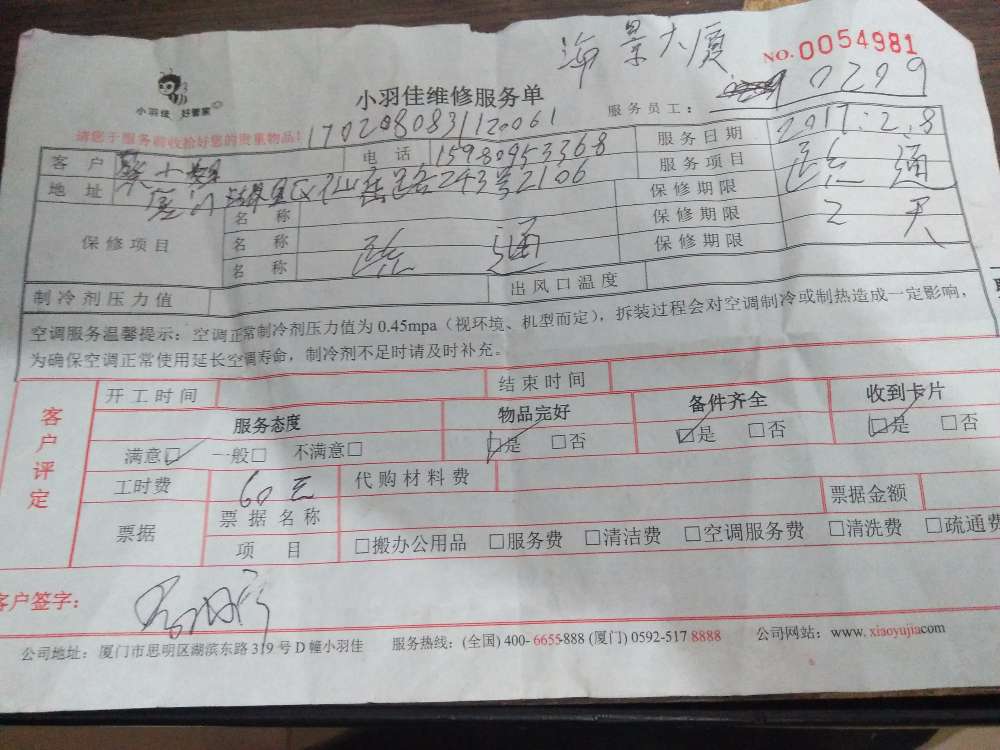 海景大厦
NO.0054981
小羽佳 好管家
小羽佳维修服务单
服务员工： 0299
请您于服务前收拾好您的贵重物品！
1702080831120061
客户 电话 15980953368 服务日期 2017.2.8
地址 243号2106 服务项目 疏通
保修项目 名称 保修期限
名称 疏通 保修期限 2天
名称 保修期限
制冷剂压力值 出风口温度
空调服务温馨提示：空调正常制冷剂压力值为0.45mpa（视环境、机型而定），拆装过程会对空调制冷或制热造成一定影响，
为确保空调正常使用延长空调寿命，制冷剂不足时请及时补充。
客户评定
开工时间 结束时间
服务态度 物品完好 备件齐全 收到卡片
满意☑ 一般□ 不满意□ ☑是 □否 ☑是 □否 ☑是 □否
工时费 60元 代购材料费
票据 票据名称 票据金额
项目 □搬办公用品 □服务费 □清洁费 □空调服务费 □清洗费 □疏通费
客户签字：
公司地址：厦门市思明区湖滨东路319号D幢小羽佳 服务热线：(全国) 400-6655-888 (厦门) 0592-517 8888 公司网站：www. xiaoyujia.com